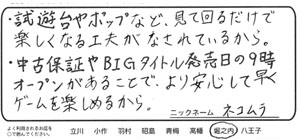 ・試遊台やポップなど、見て回るだけで
楽しくなる工夫がなされているから。
・中古保証やBIGタイトル発売日の9時
オープンがあることで、より安心して早く
ゲームを楽しめるから。
ニックネーム ネコムラ
よく利用されるお店を
○で囲んでください。 立川 小作 羽村 昭島 青梅 高幡 堀之内 八王子